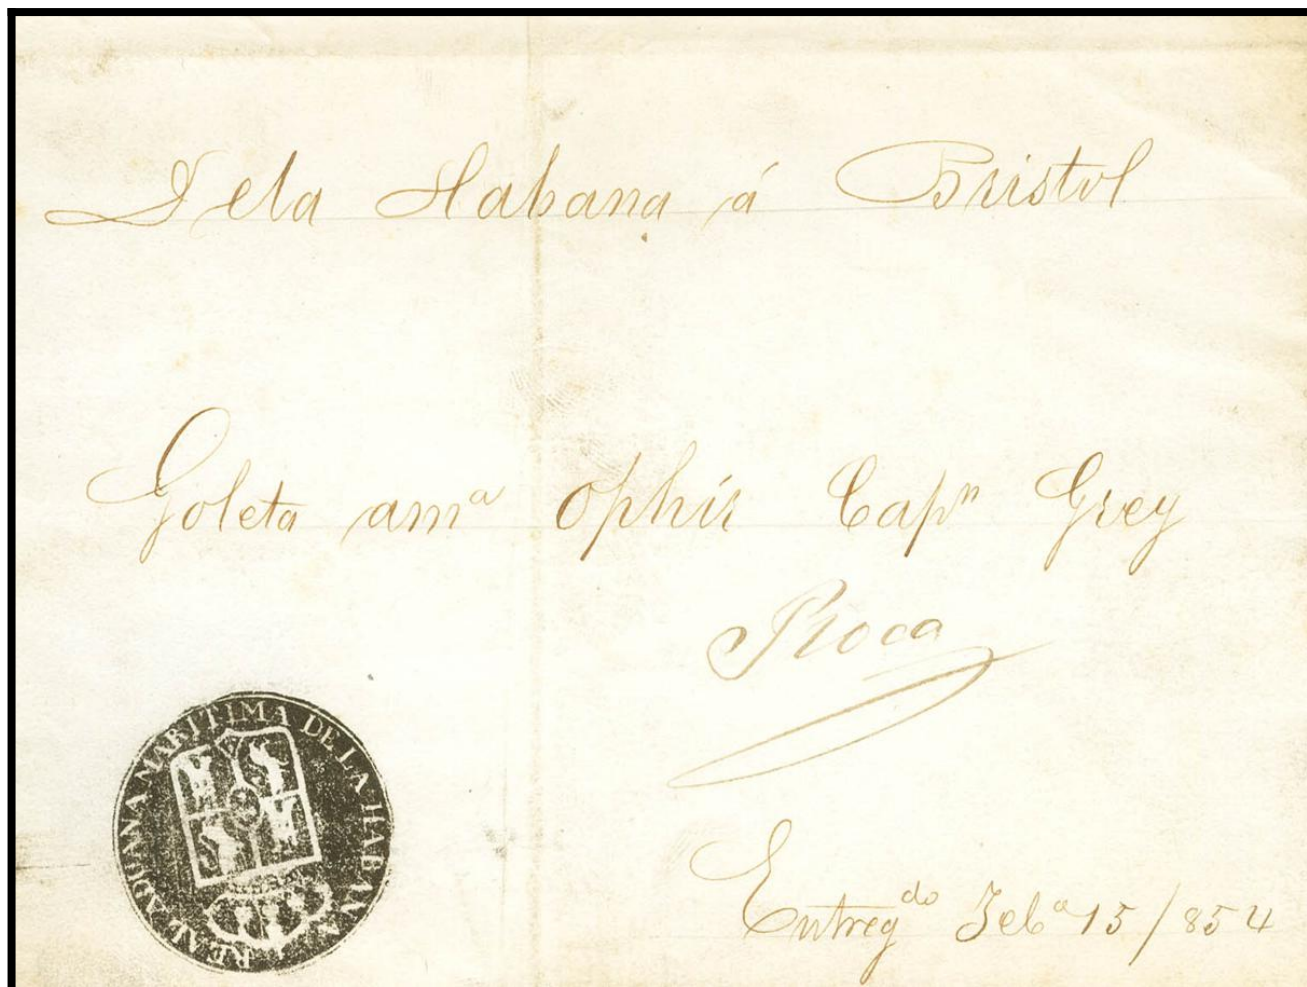 De la Habana á Bristol
Goleta amª Ophir Capⁿ Grey
Roca
REAL ADUANA MARITIMA DE LA HABANA
Entregᵈᵒ Febº 15/854